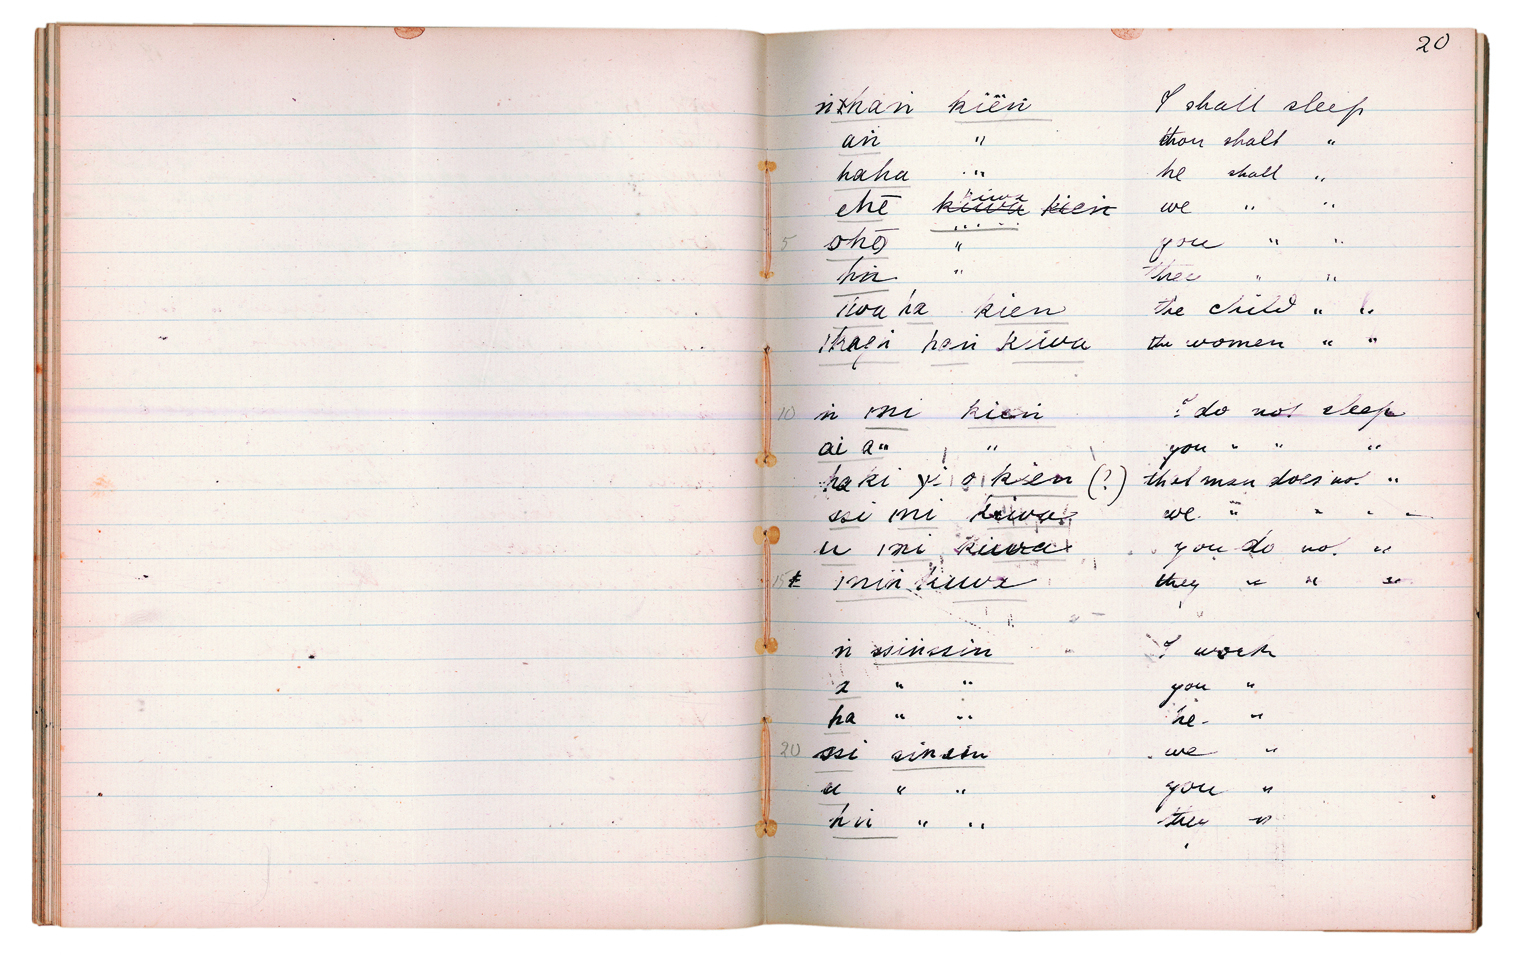 20
n xhan kiën I shall sleep
an " thou shalt "
haha " he shall "
ehē kiuva kiuva kien we " "
5 ohē " you " "
hin " they " "
iiva ha kien the child " "
han kiwa the women " "
10 n mi kien I do not sleep
ai a" " you " " "
haki yi o kien (?) that man does not "
ssi mi kuwa we " " " "
u mi kuwa you do not "
15 min kuwa they " " "
n ssinssin I work
a " " you "
ha " " he "
20 ssi sinsin we "
u " " you "
hin " " they "